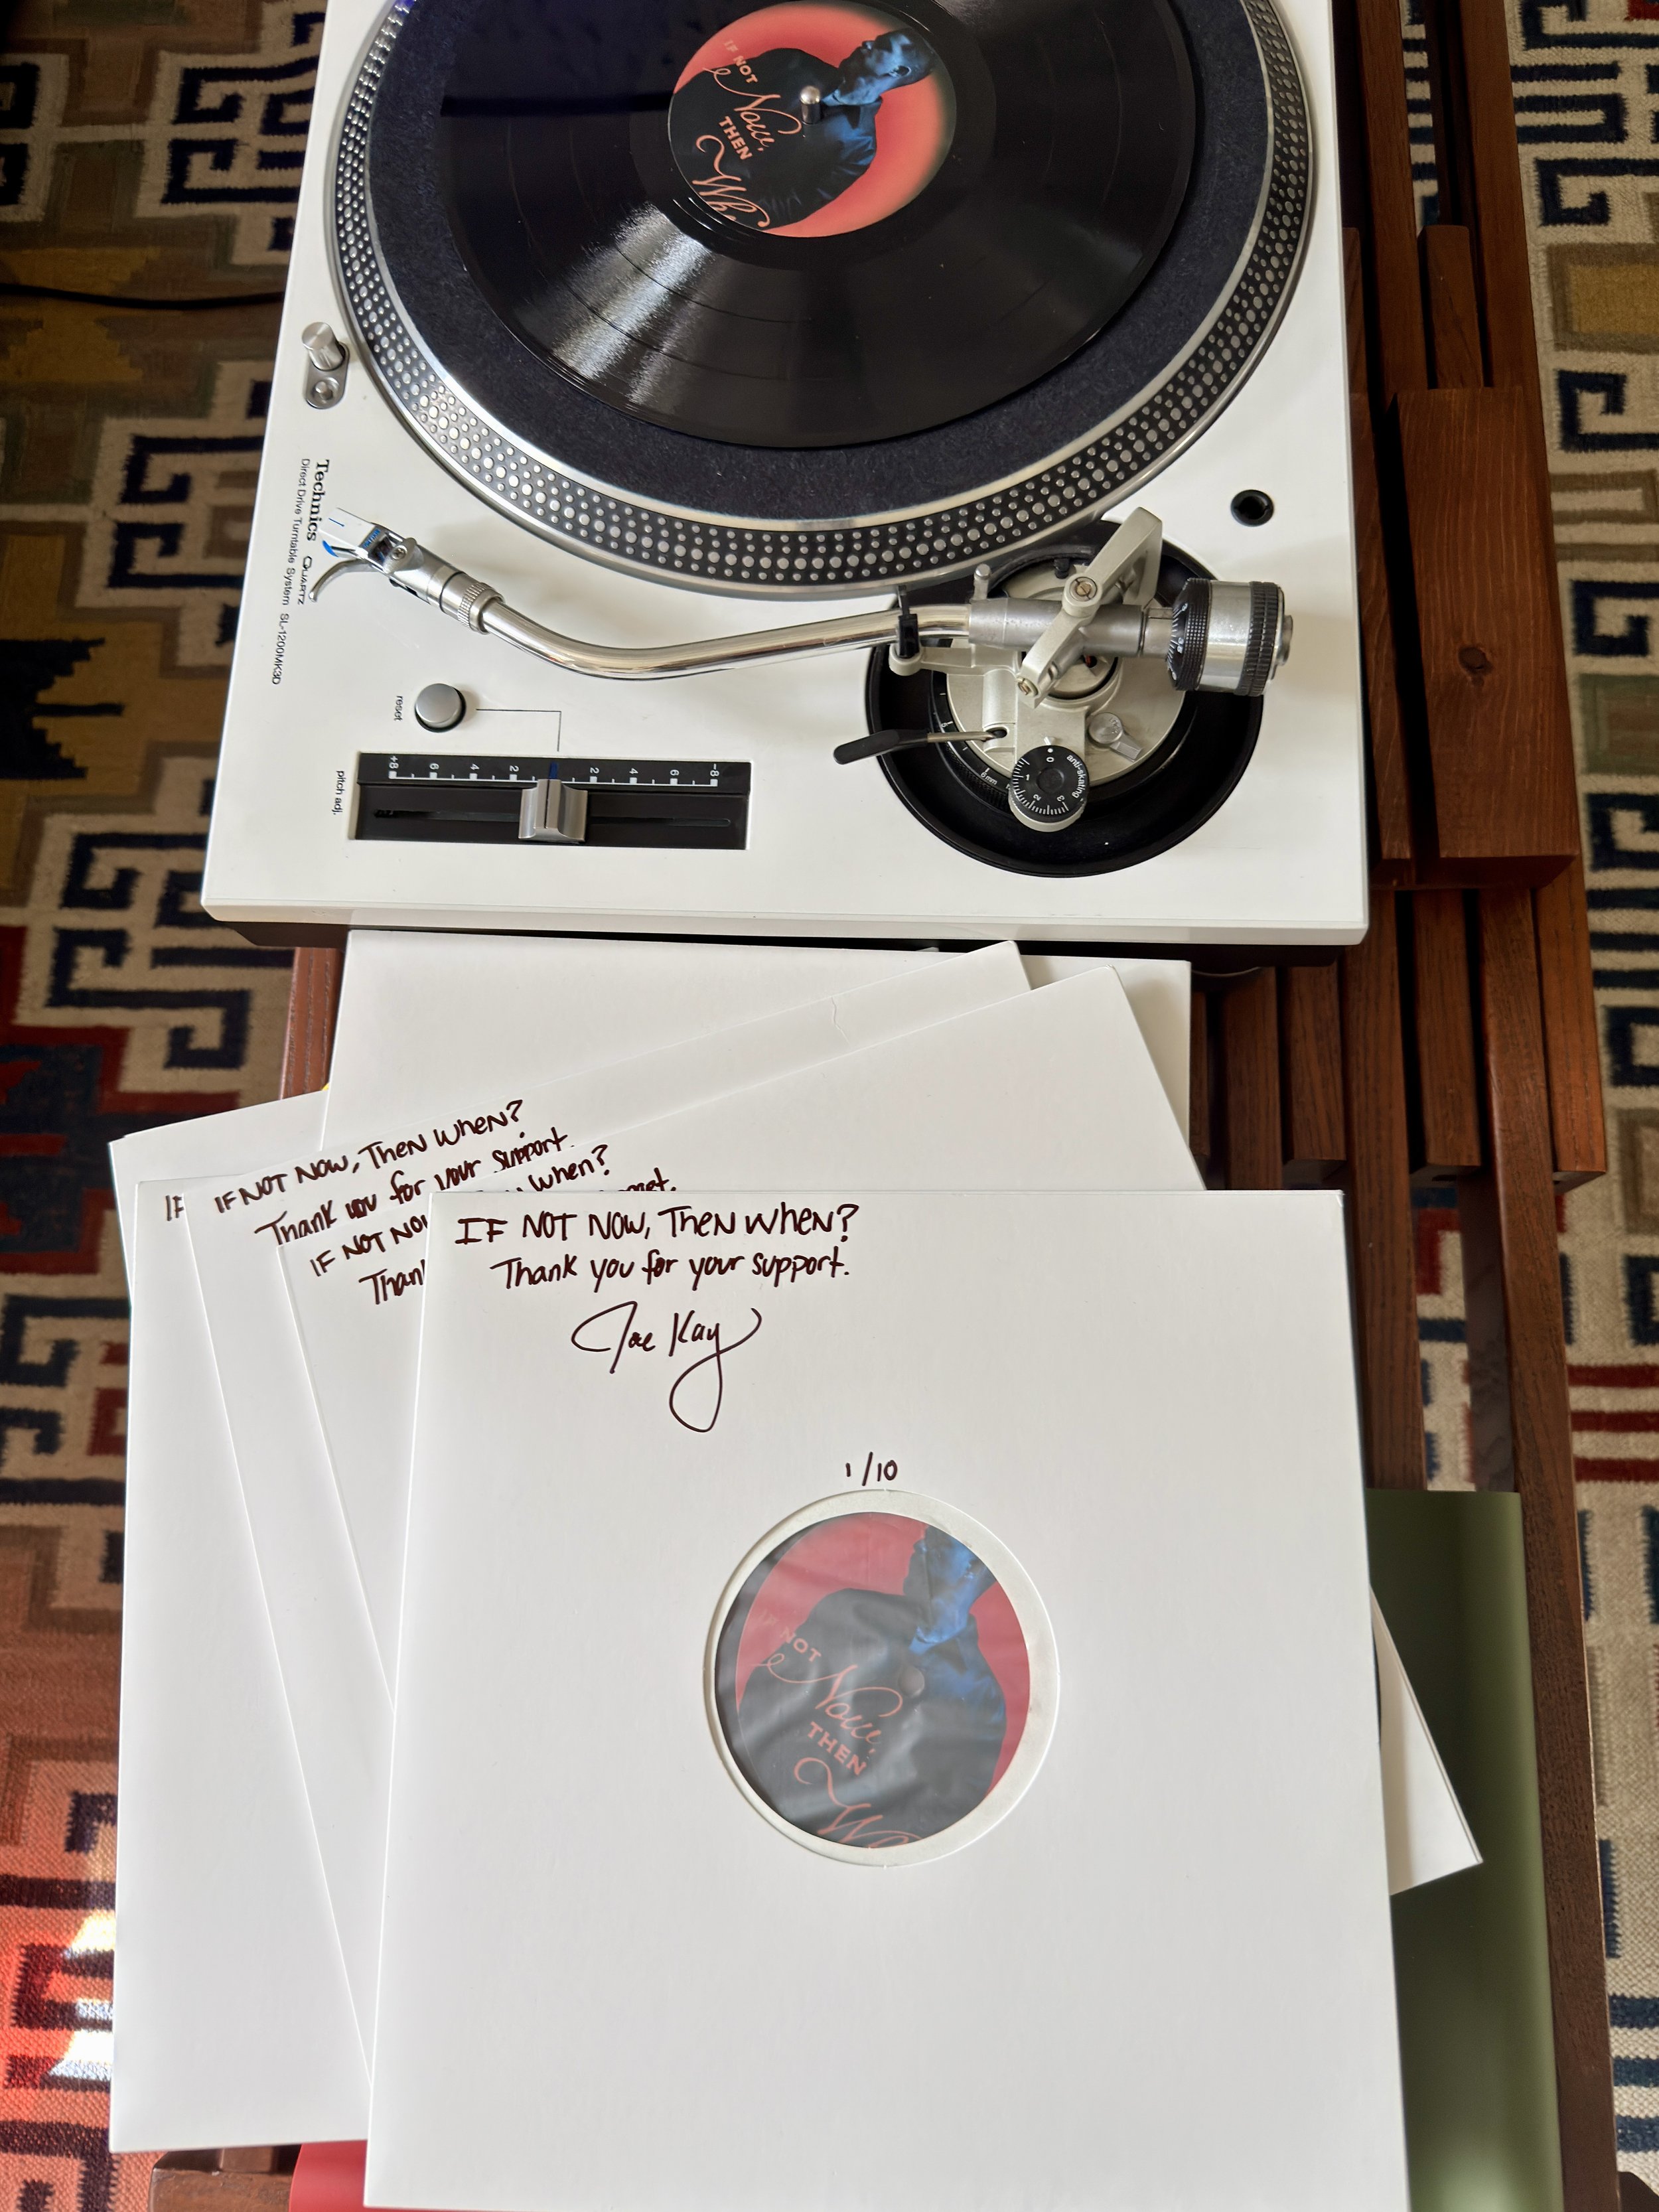 IF NOT
Now,
THEN
Technics QUARTZ
Direct Drive Turntable System SL-1200MK3D
reset
+8 6 4 2 2 4 6 -8
pitch adj.
anti-skating
0 1 2 3
IF NOT NOW, THEN WHEN?
Thank you for your support.
When?
IF
IF NOT NOW
Thank
IF NOT NOW, THEN WHEN?
Thank you for your support.
Joe Kay
1/10
IF NOT
Now,
THEN